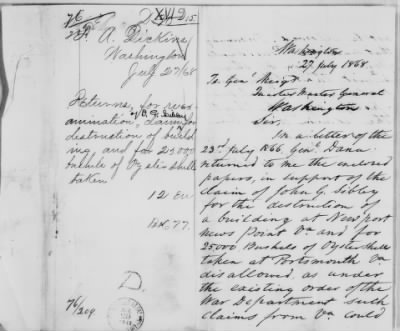 F. A. Dickins
Washington
July 27/68
Returns, for reex-
amination, claim
of J. G. Sibley for
destruction of build-
ing, and for 25000
bushels of Oyster shells
taken
12 En
D.
76/209
Washington
27 July 1868
To Genl Meigs
Quarter Master General
Washington
Sir,
In a letter of the
23d July 1866 Genl Dana
returned to me the enclosed
papers, in support of the
claim of John G. Sibley
for the destruction of
a building at Newport
News Point Va and for
25000 Bushels of Oyster shells
taken at Portsmouth Va
disallowed as under
the existing order of the
War Department such
claims from Va could